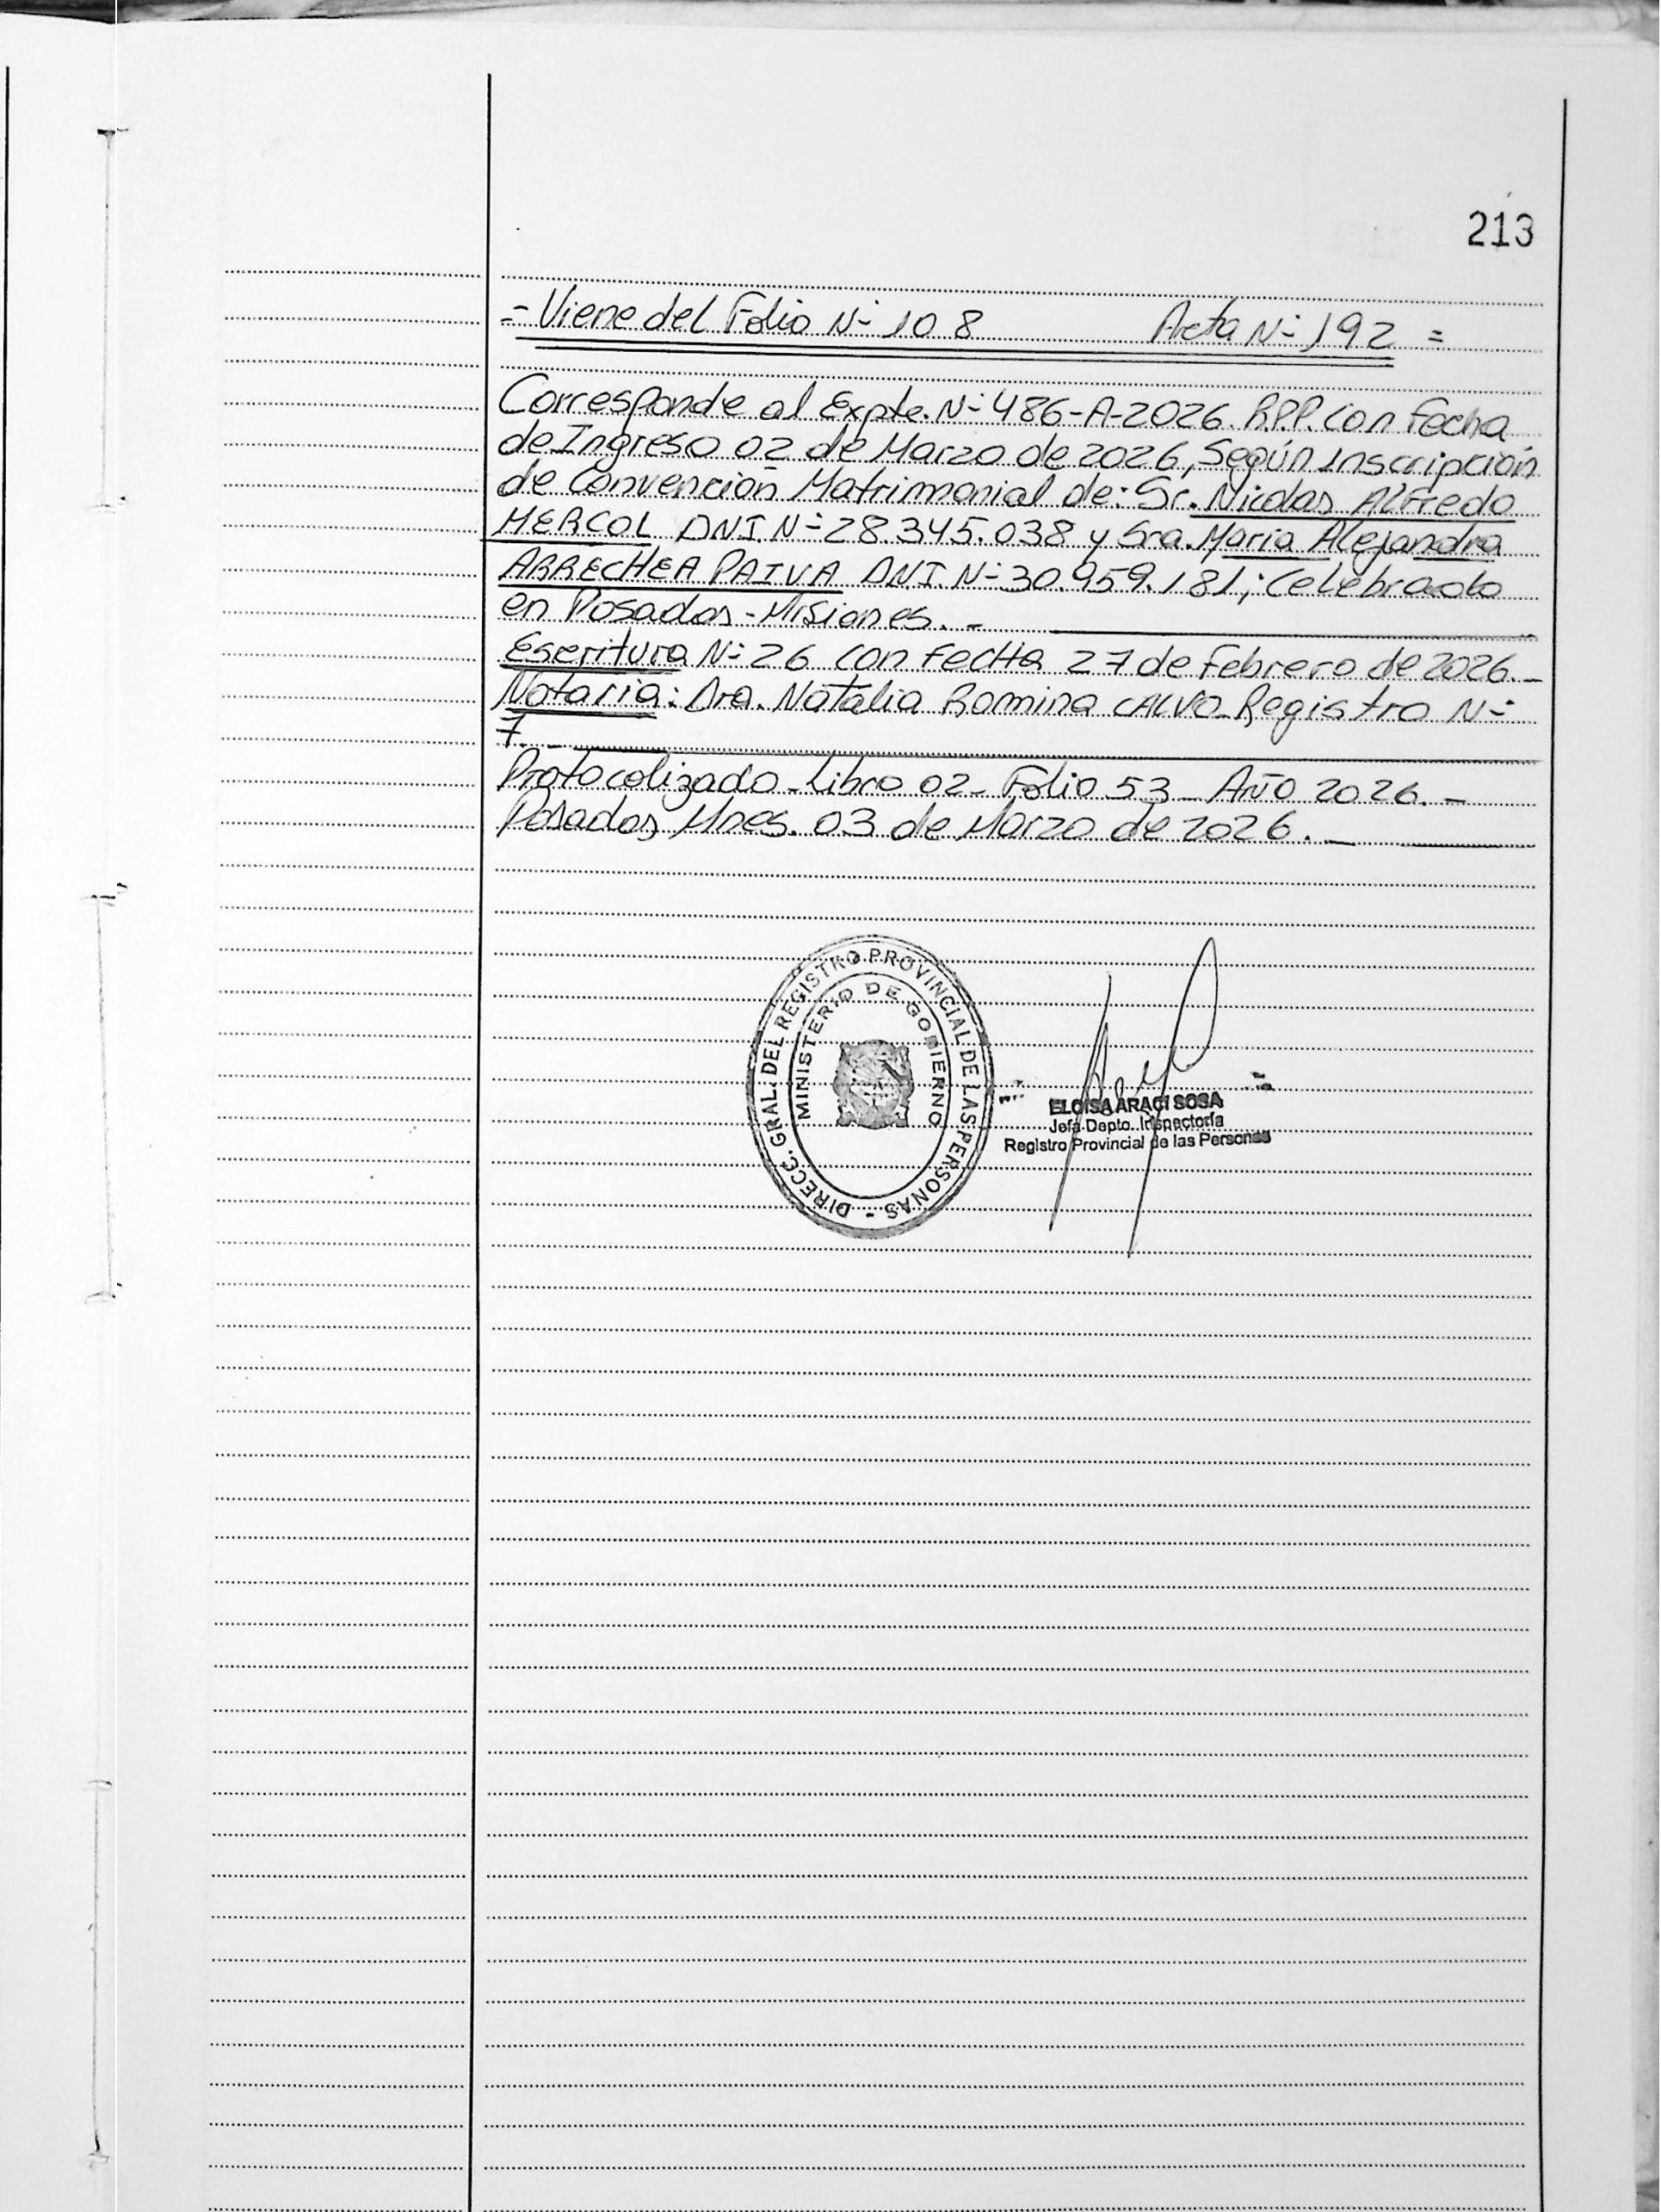 213
=Viene del Folio N- 108 Acta N- 192 =
Corresponde al Expte. N- 486-A-2026. R.P.P. con Fecha
de Ingreso 02 de Marzo de 2026, Según Inscripción
de Convención Matrimonial de: Sr. Nicolas Alfredo
MERCOL DNI. N- 28.345.038 y Sra. Maria Alejandra
ARRECHEA PAIVA DNI. N- 30.959.181; Celebrado
en Posadas-Misiones.-
Escritura N- 26 con Fecha 27 de Febrero de 2026.-
Notaria: Dra. Natalia Romina CALVO-Registro N-
7.-
Protocolizado-Libro 02-Folio 53-Año 2026.-
Posadas, Mnes. 03 de Marzo de 2026.-
DIRECC. GRAL. DEL REGISTRO PROVINCIAL DE LAS PERSONAS -
MINISTERIO DE GOBIERNO
ELOISA ARACI SOSA
Jefa Depto. Inspectoría
Registro Provincial de las Personas